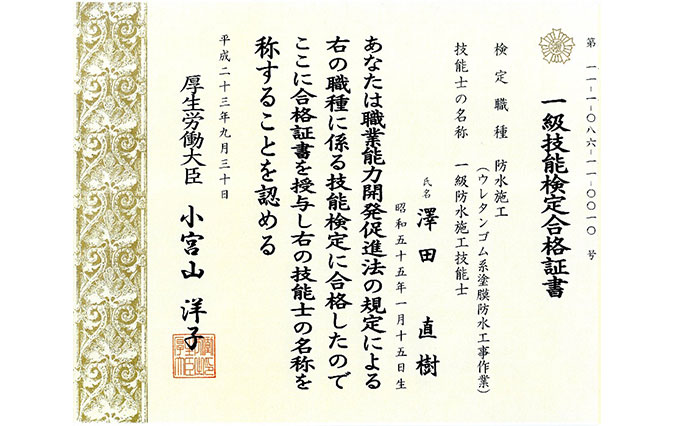 第 一一-一-〇八六-一一-〇〇一〇 号
一級技能検定合格証書
検定職種 防水施工
（ウレタンゴム系塗膜防水工事作業）
技能士の名称 一級防水施工技能士
氏名 澤田 直樹
昭和五十五年一月十五日生
あなたは職業能力開発促進法の規定による
右の職種に係る技能検定に合格したので
ここに合格証書を授与し右の技能士の名称を
称することを認める
平成二十三年九月三十日
厚生労働大臣 小宮山 洋子